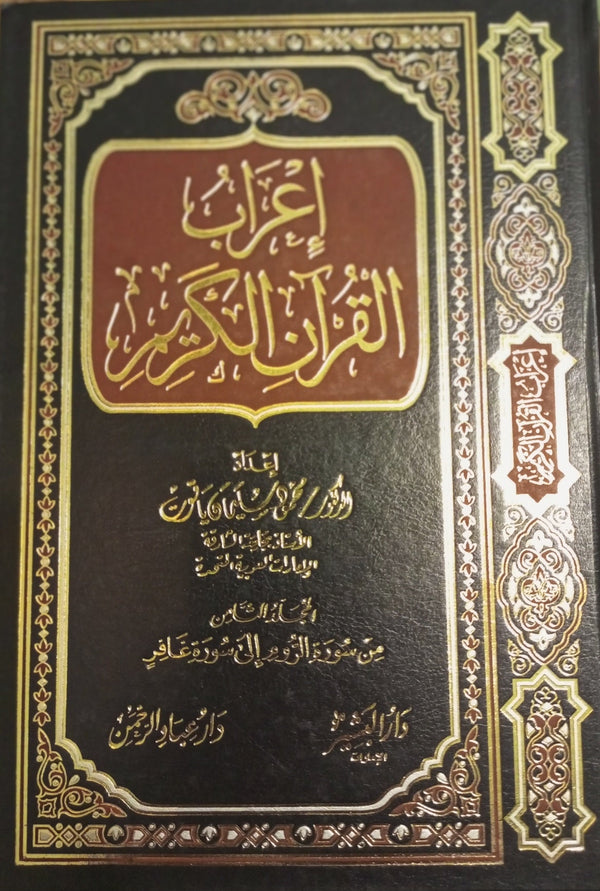 إِعْرَابُ
القُرْآنِ الكَرِيمِ
إِعْدَادُ
الدكتور/ محمود سليمان ياقوت
الأستاذ بجامعة الشارقة
الإمارات العربية المتحدة
المجلد الثامن
مِنْ سُورَةِ الرُّومِ إِلَى سُورَةِ غَافِرٍ
دَارُ البَشِيرِ
الإمارات
دَارُ عِبَادِ الرَّحْمَنِ
إعراب القرآن الكريم